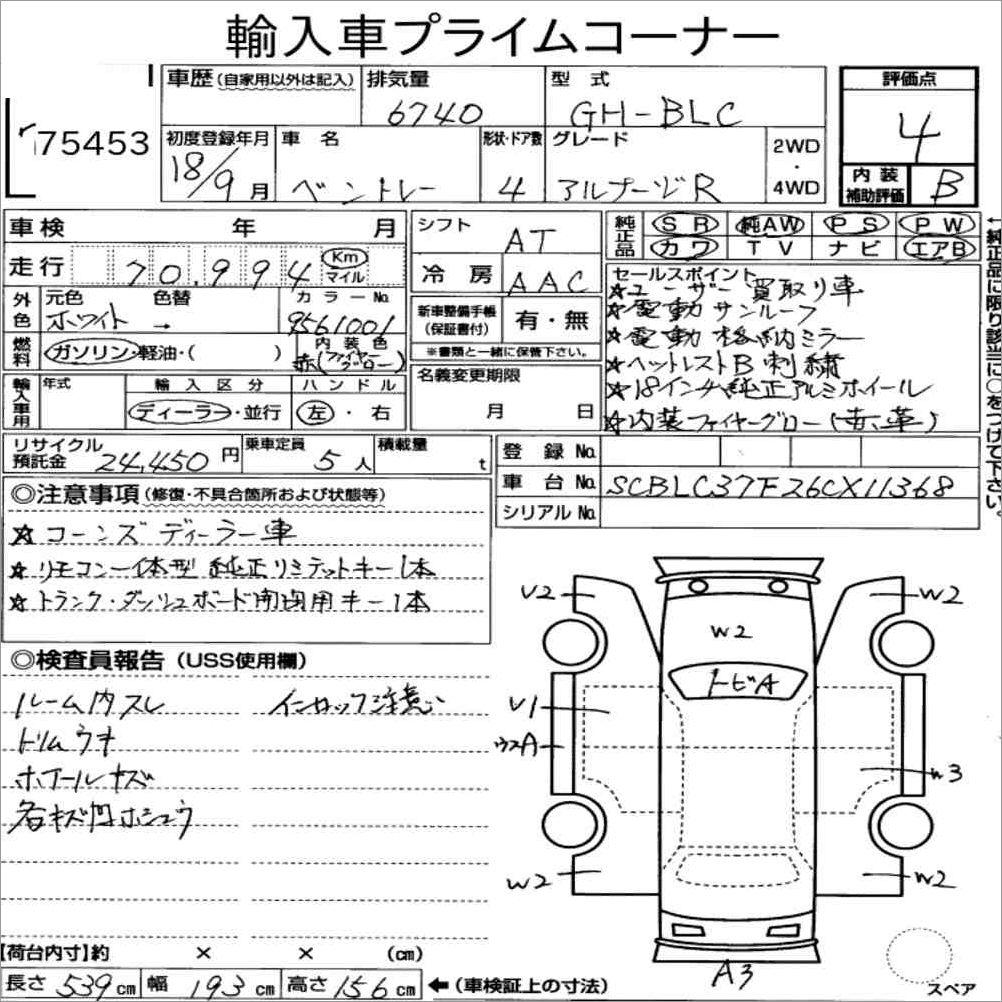 輸入車プライムコーナー
75453
車歴(自家用以外は記入)
排気量 6740
型式 GH-BLC
評価点 4
初度登録年月 18/9月
車名 ベントレー
形状・ドア数 4
グレード アルナージR
2WD・4WD
内装補助評価 B
車検 年 月
走行 70,994 Km マイル
シフト AT
冷房 AAC
純正品 SR 純AW PS PW
カワ TV ナビ エアB
外色 元色 ホワイト → 色替
カラーNo. 9561001
内装色 赤(ファイヤーグロー)
燃料 ガソリン・軽油・( )
新車整備手帳(保証書付) 有・無
※書類と一緒に保管下さい。
セールスポイント
☆ユーザー買取り車
☆電動サンルーフ
☆電動格納ミラー
☆ヘッドレストB刺繍
☆18インチ純正アルミホイール
☆内装ファイヤーグロー(赤革)
←純正品に限り該当に○をつけて下さい。
輸入車用 年式
輸入区分 ディーラー・並行
ハンドル 左・右
名義変更期限 月 日
リサイクル預託金 24,450円
乗車定員 5人
積載量 t
登録No.
車台No. SCBLC37F26CX11368
シリアルNo.
◎注意事項(修復・不具合箇所および状態等)
☆コーンズディーラー車
☆リモコン一体型純正リミテットキー1本
☆トランク・ダッシュボード開閉用キー1本
◎検査員報告(USS使用欄)
ルーム内スレ インロック注意
トリムウキ
ホイールキズ
各キズ凹ホシュウ
U2 W2
W2
トビA
U1
ウスA
W3
W2 W2
A3
スペア
【荷台内寸】約 × × (cm)
長さ 539cm 幅 193cm 高さ 156cm ←(車検証上の寸法)